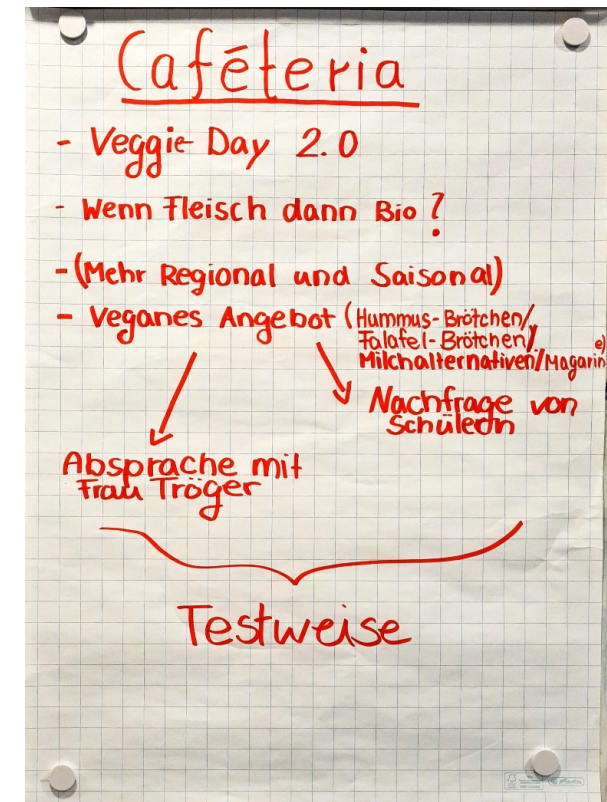 Caféteria
- Veggie Day 2.0
- Wenn Fleisch dann Bio?
- (Mehr Regional und Saisonal)
- Veganes Angebot (Hummus-Brötchen/
Falafel-Brötchen/
Milchalternativen/Magarine)
Nachfrage von
Schülern
Absprache mit
Frau Tröger
Testweise